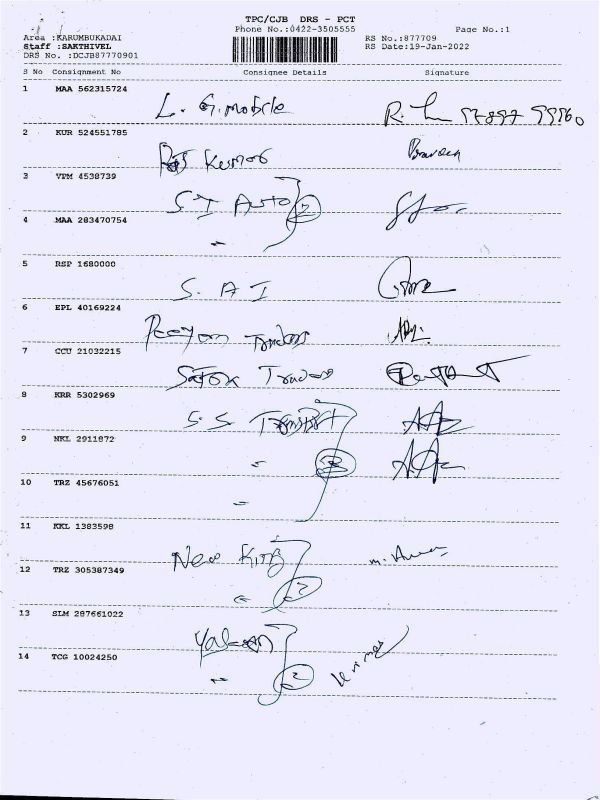 TPC/CJB DRS - PCT
Phone No.:0422-3505555
Page No.:1
Area :KARUMBUKADAI
RS No.:877709
Staff :SAKTHIVEL
RS Date:19-Jan-2022
DRS No. :DCJB87770901
S No Consignment No Consignee Details Signature
1 MAA 562315724
L. G. mobile
2 KUR 524551785
Raj Kumar Praveen
3 VPM 4538739
S I Auto 2
4 MAA 283470754
"
5 RSP 1680000
S. A I
6 EPL 40169224
Traders
7 CCU 21032215
Traders
8 KRR 5302969
S.S. Transport
9 NKL 2911872
" 3
10 TRZ 45676051
"
11 KKL 1383598
New King
12 TRZ 305387349
" 2
13 SLM 287661022
14 TCG 10024250
" 2